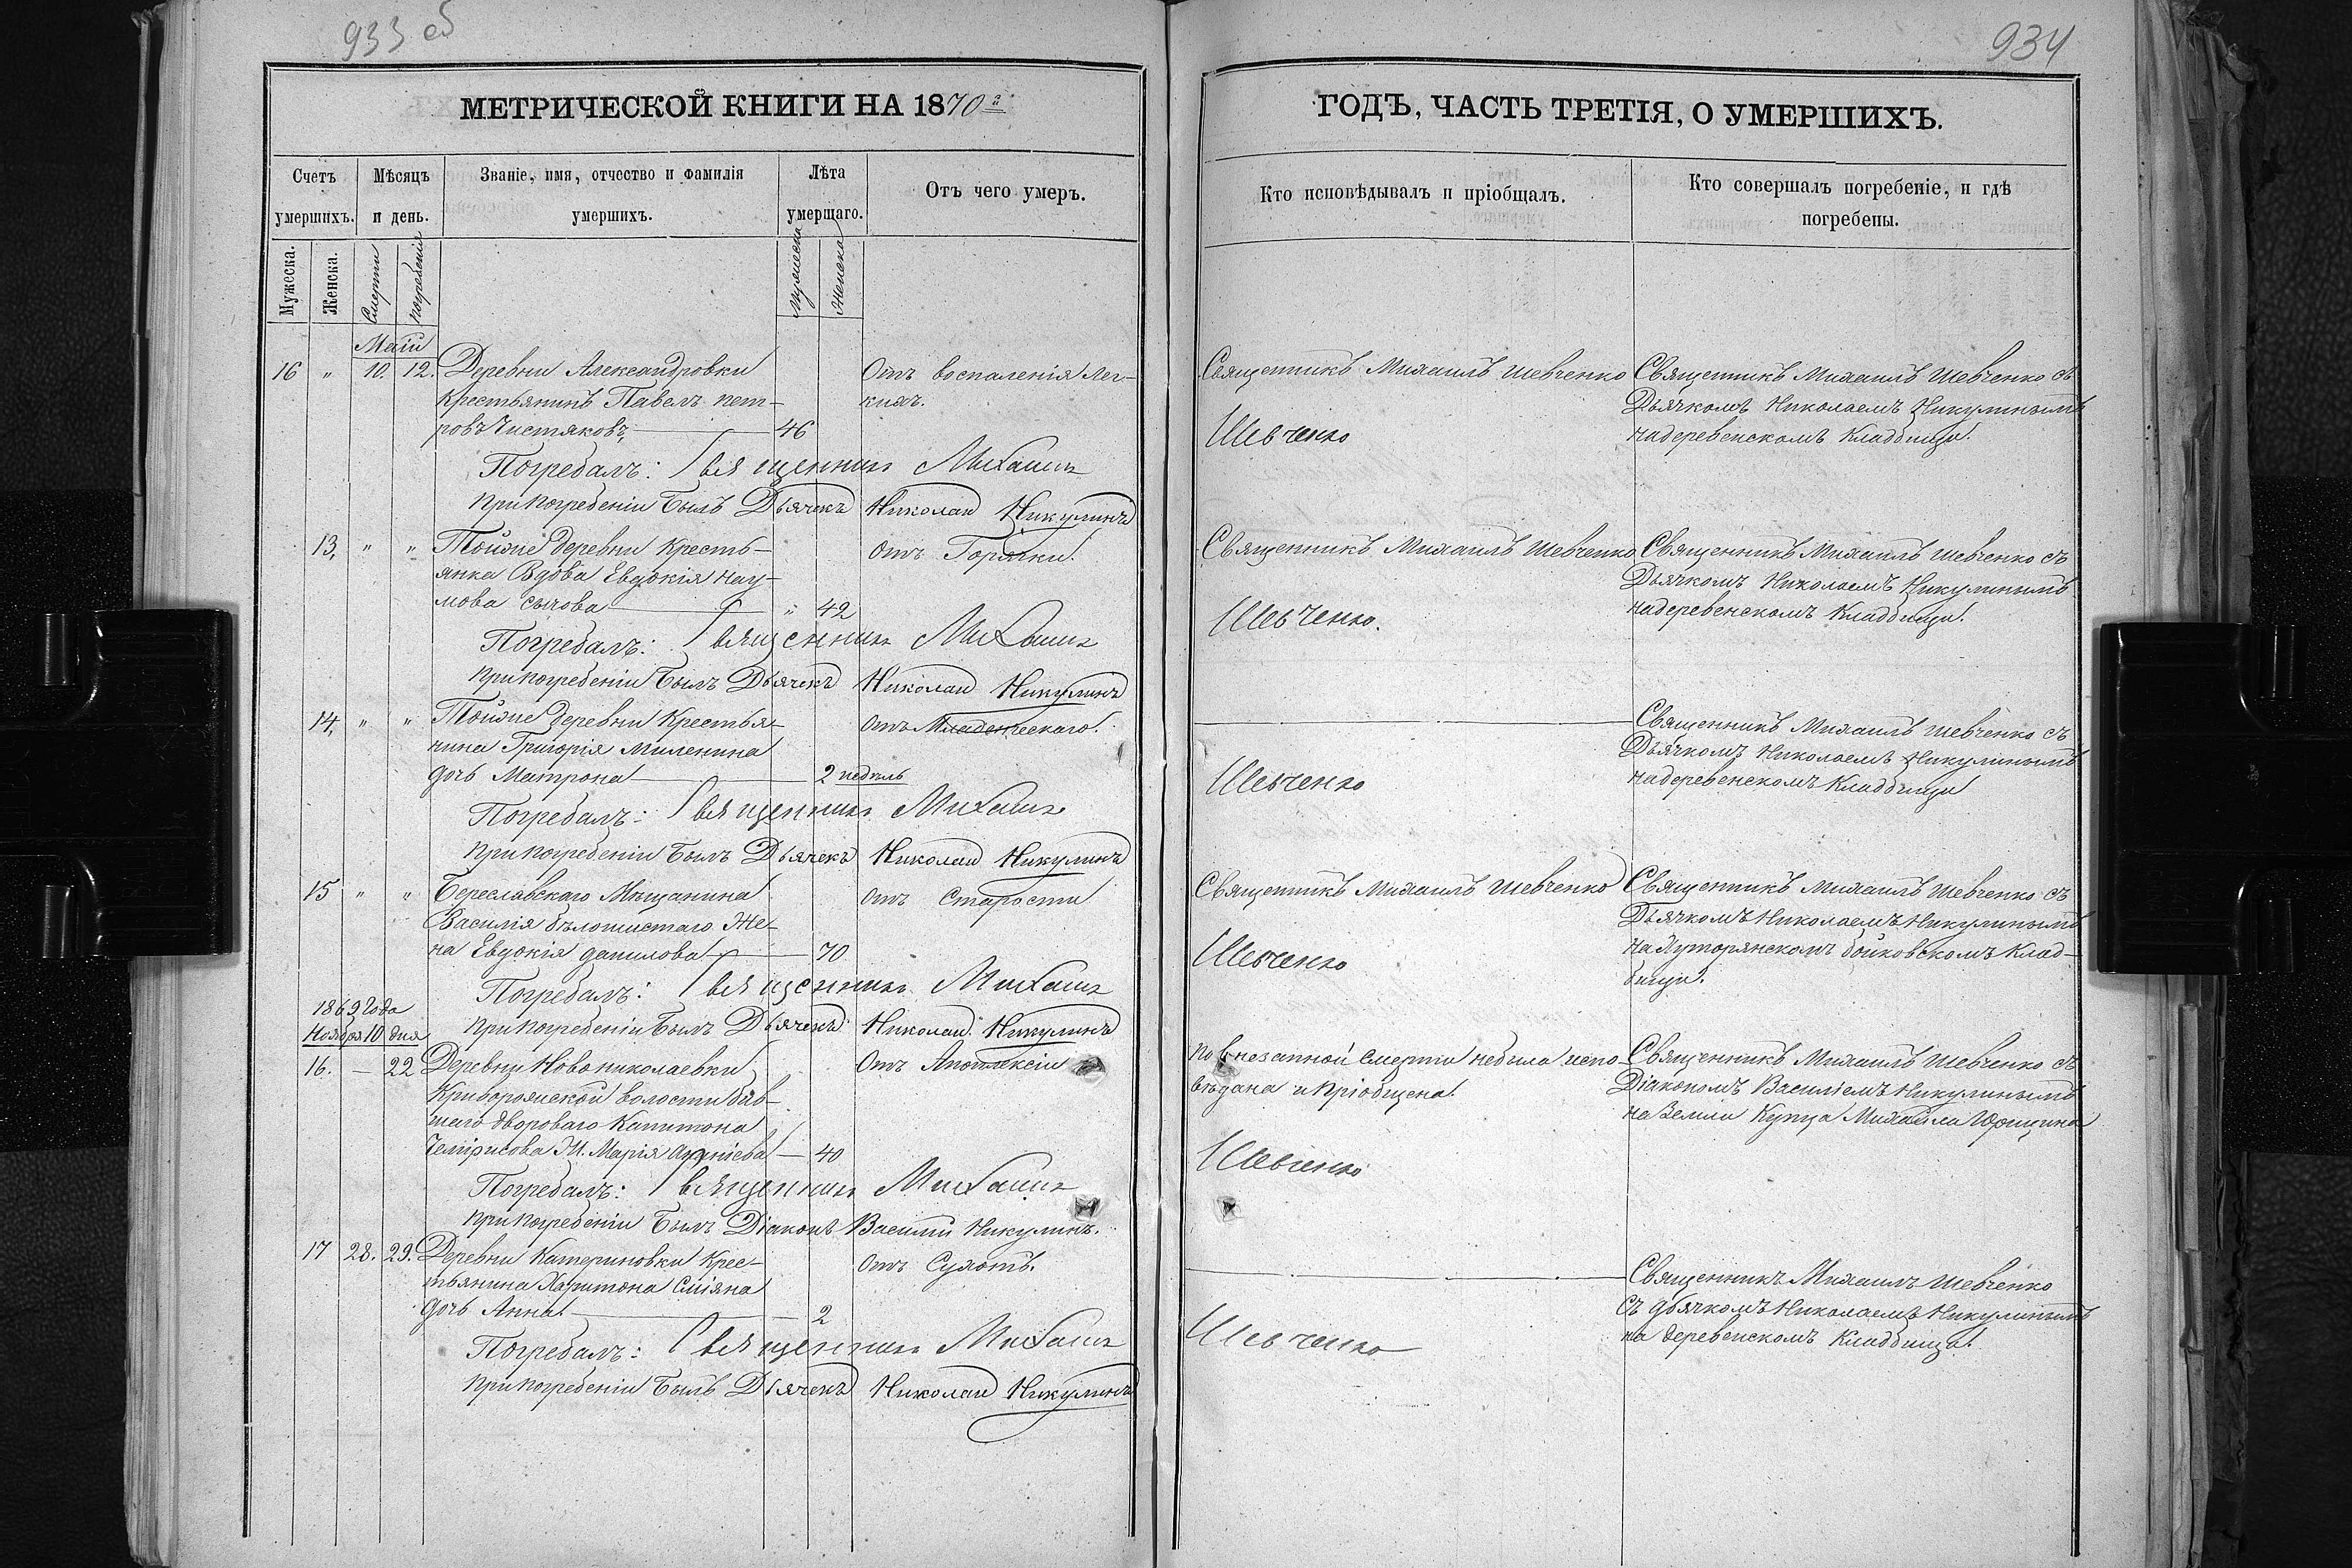 933 об
МЕТРИЧЕСКОЙ КНИГИ НА 1870й
Счетъ умершихъ.
Мѣсяцъ и день.
Званіе, имя, отчество и фамилія умершихъ.
Лѣта умершаго.
Отъ чего умеръ.
Мужеска.
Женска.
Смерти
погребенія
Мужеска
Женска
Маій
16 " 10. 12. Деревни Александровки Отъ воспаленія Лег-
Крестьянинъ Павелъ пет- кихъ.
ровъ Чистяковъ 46
Погребалъ: Священникъ Михаилъ
При погребеніи былъ Дьячекъ Николай Никулинъ
13, " " Тойже деревни Кресть- отъ Горячки.
янка Вдова Евдокія Нау-
мова сычова " 42
Погребалъ: Священникъ Михаилъ
При погребеніи былъ Дьячекъ Николай Никулинъ
14, " " Тойже деревни Крестья- отъ Младенческаго.
нина Григорія Миленина
дочь Матрона 2 недель
Погребалъ: Священникъ Михаилъ
При погребеніи былъ Дьячекъ Николай Никулинъ
15 " " Береславскаго Мещанина отъ Старости
Василія бѣлошистаго Же-
на Евдокія данилова 70
Погребалъ: Священникъ Михаилъ
1869 Года
Ноября 10 дня При погребеніи былъ Дьячекъ Николай Никулинъ
16. — 22 Деревни Новониколаевки Отъ Апоплексіи
Криворожской волости быв-
шаго дворового Капитона
Ж. Марія — 40
Погребалъ: Священникъ Михаилъ
при погребеніи былъ Діаконъ Василій Никулинъ.
17 28. 29. Деревни Катериновки Крес- отъ Сухотъ.
тьянина Харитона Сміяна
дочь Анна. 2
Погребалъ: Священникъ Михаилъ
При погребеніи былъ Дьячекъ Николай Никулинъ
934
ГОДЪ, ЧАСТЬ ТРЕТІЯ, О УМЕРШИХЪ.
Кто исповѣдывалъ и пріобщалъ.
Кто совершалъ погребеніе, и гдѣ погребены.
Священникъ Михаилъ Шевченко Священникъ Михаилъ Шевченко съ
Дьячкомъ Николаемъ Никулинымъ
Шевченко на деревенскомъ Кладбищи.
Священникъ Михаилъ Шевченко Священникъ Михаилъ Шевченко съ
Дьячкомъ Николаемъ Никулинымъ
Шевченко. на деревенскомъ Кладбищи.
Священникъ Михаилъ Шевченко съ
Дьячкомъ Николаемъ Никулинымъ
Шевченко на деревенскомъ Кладбищи
Священникъ Михаилъ Шевченко Священникъ Михаилъ Шевченко съ
Дьячкомъ Николаемъ Никулинымъ
Шевченко на Хуторянскомъ бойковскомъ Клад-
бищи.
По внезапной Смерти небыла испо- Священникъ Михаилъ Шевченко съ
вѣдана и Пріобщена. Діакономъ Василіемъ Никулинымъ
на Земли Купца Михаила Юрицина
Шевченко
Священникъ Михаилъ Шевченко
съ дьячкомъ Николаемъ Никулинымъ
Шевченко на деревенскомъ Кладбищи.